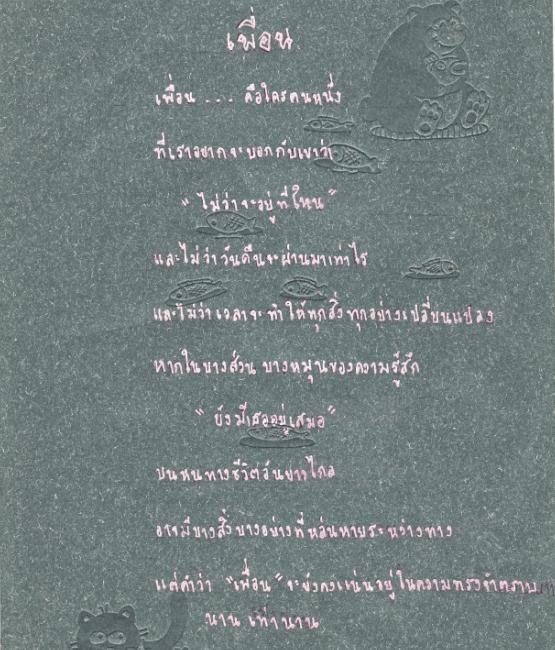 เพื่อน
เพื่อน . . . คือใครคนหนึ่ง
ที่เราอยากจะบอกกับเขาว่า
“ไม่ว่าจะอยู่ที่ไหน”
และไม่ว่าวันคืนจะผ่านมาเท่าไร
และไม่ว่าเวลาจะทำให้ทุกสิ่งทุกอย่างเปลี่ยนแปลง
หากในบางส่วน บางหมุนของความรู้สึก
“ยังมีเธออยู่เสมอ”
บนหนทางชีวิตอันยาวไกล
อาจมีบางสิ่งบางอย่างที่หล่นหายระหว่างทาง
แต่คำว่า “เพื่อน” จะยังคงแน่นอยู่ในความทรงจำตราบ
นาน เท่านาน